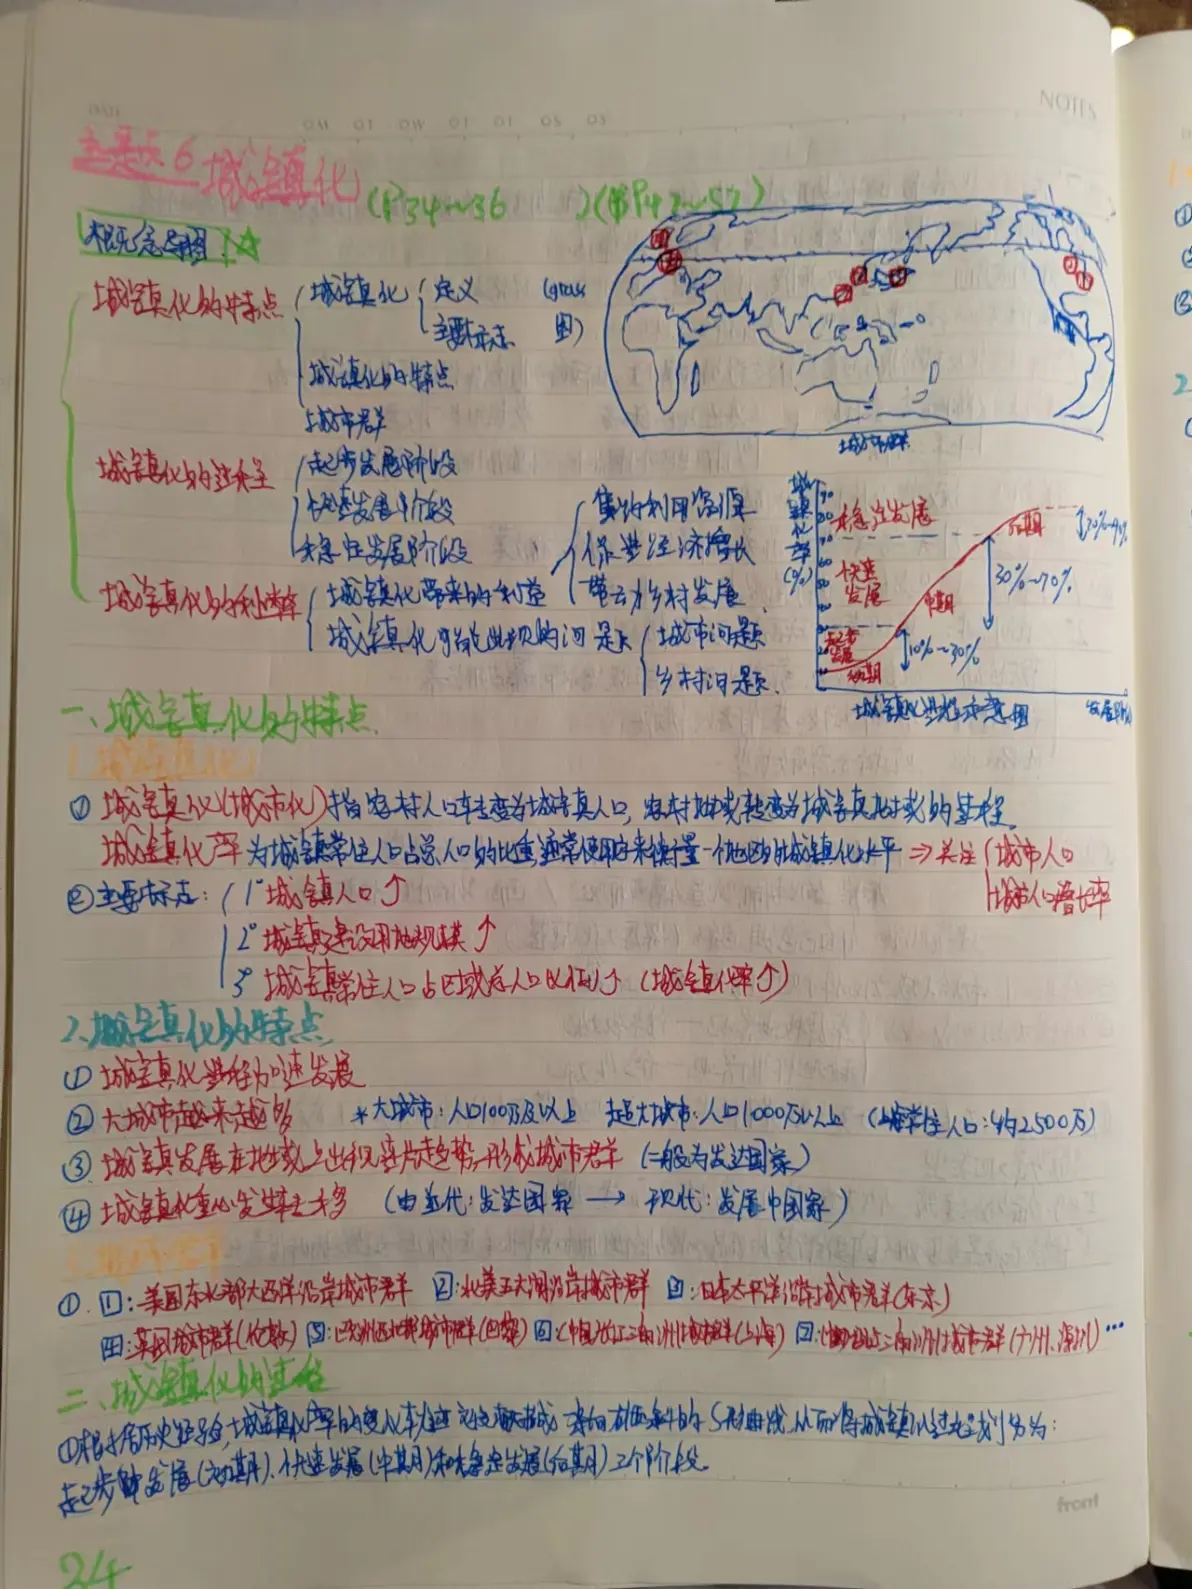 DATE
NOTES
主题6 城镇化 (P34~36 )(P47~57)
概念导图:☆
城镇化的特点
城镇化
定义
主要标志
图)
城镇化的特点
城市群
城市群
城镇化的进程
起步发展阶段
快速发展阶段
稳定发展阶段
城镇化的利弊
城镇化带来的利益
集约利用资源
促进经济增长
带动乡村发展
城镇化可能出现的问题
城市问题
乡村问题
城镇化率(%)
稳定发展
后期
快速发展
中期
30%~70%
起步发展
初期
10%~30%
城镇化进程示意图
一、城镇化的特点
1.城镇化
① 城镇化(城市化)指农村人口转变为城镇人口,农村地域转变为城镇地域的过程
城镇化率为城镇常住人口占总人口的比重,通常使用它来衡量一个地区的城镇化水平 ⇒ 关注 城市人口
城市人口增长率
②主要标志: 1° 城镇人口↑
2° 城镇建设用地规模↑
3° 城镇常住人口占区域总人口比例↑ (城镇化率↑)
2.城镇化的特点
① 城镇化进程加速发展
② 大城市越来越多 *大城市:人口100万及以上 超大城市:人口1000万以上 (上海常住人口:约2500万)
③ 城镇发展在地域上出现连片趋势,形成城市群 (一般为发达国家)
④ 城镇化重心发生转移 (由近代:发达国家 → 现代:发展中国家)
3.城市群
①. 1:美国东北部大西洋沿岸城市群 2:北美五大湖沿岸城市群 3:日本太平洋沿岸城市群(东京)
四:英国城市群(伦敦) 5:欧洲西北部城市群(巴黎) 6:中国长江三角洲城市群(上海) 7:中国珠江三角洲城市群(广州、深圳)…
二、城镇化的进程
①根据历史经验,城镇化率的变化轨迹 S形曲线,从而将城镇化过程划分为:
起步发展(初期)、快速发展(中期)和稳定发展(后期)三个阶段.
front
34